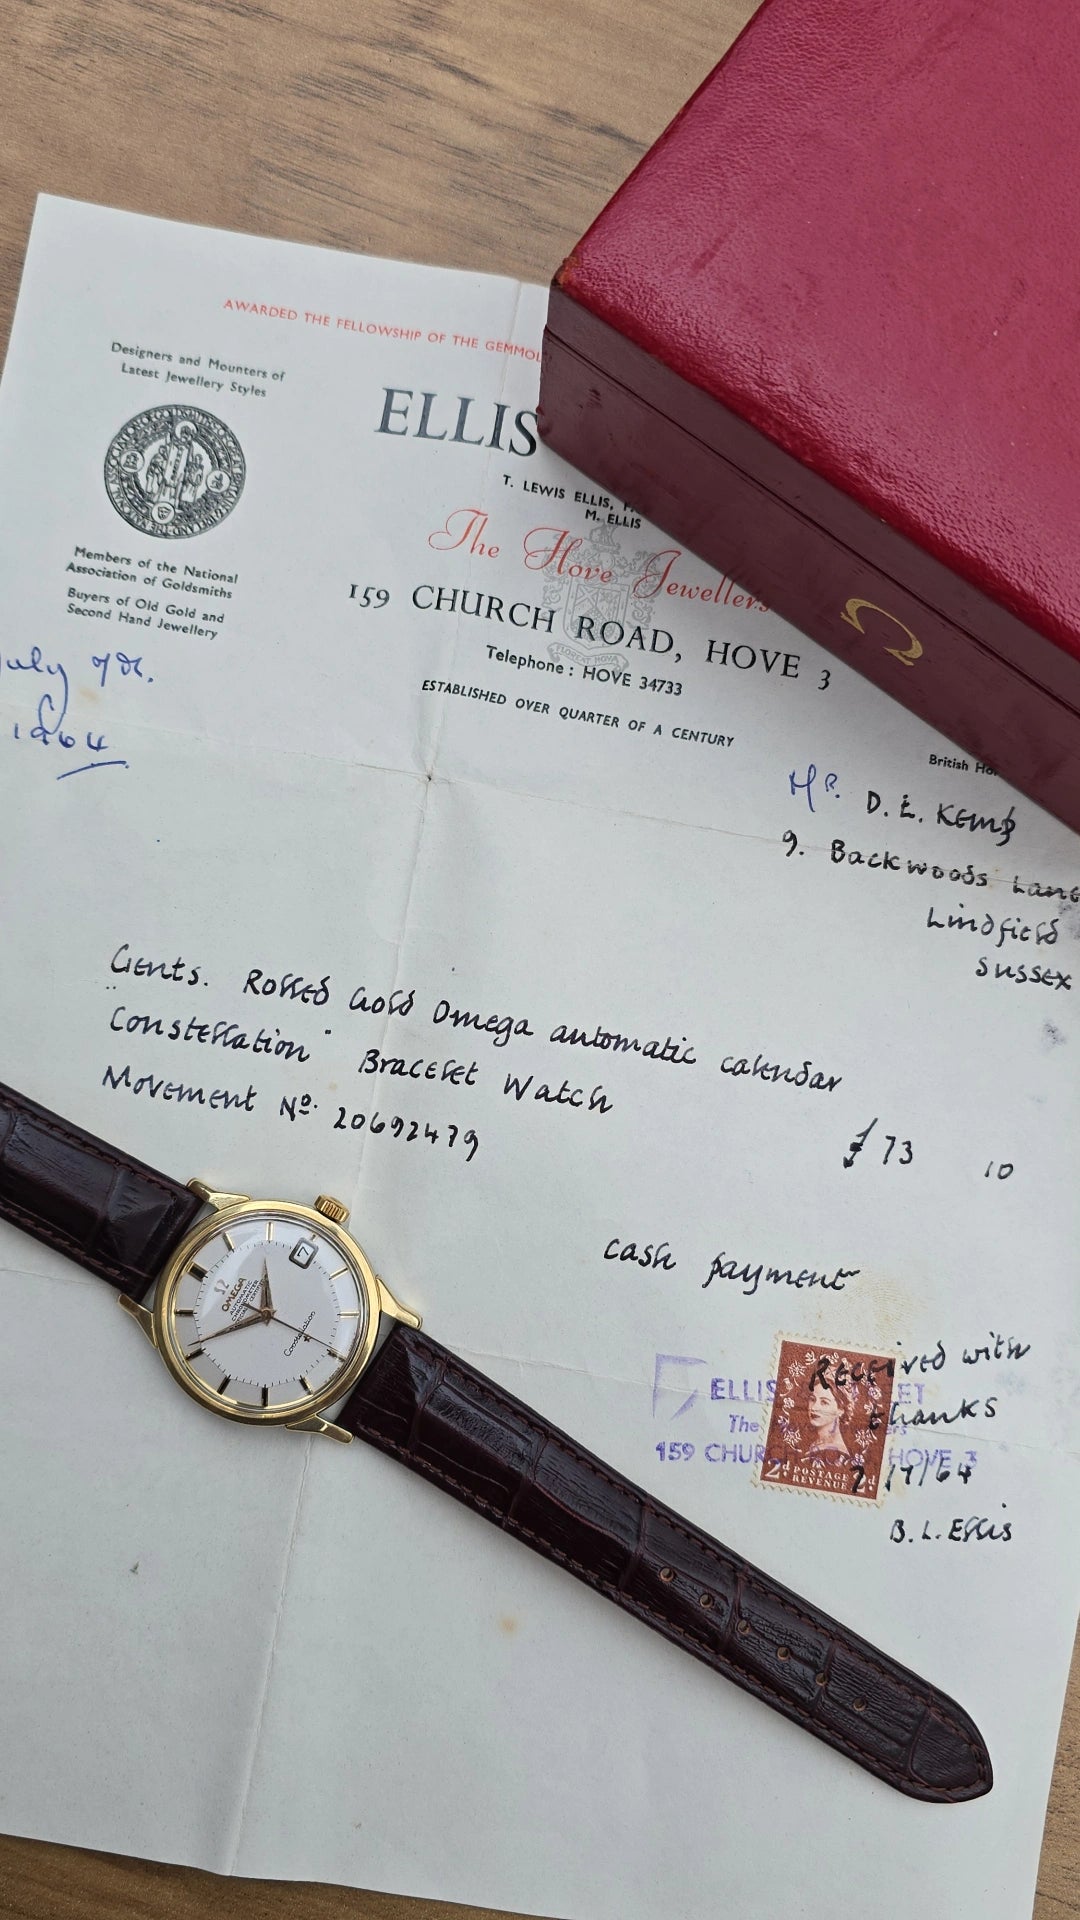 AWARDED THE FELLOWSHIP OF THE GEMMOL
Designers and Mounters of
Latest Jewellery Styles
ELLIS
T. LEWIS ELLIS,
M. ELLIS
The Hove Jewellers
159 CHURCH ROAD, HOVE 3
Telephone: HOVE 34733
ESTABLISHED OVER QUARTER OF A CENTURY
Members of the National
Association of Goldsmiths
Buyers of Old Gold and
Second Hand Jewellery
FLOREAT HOVA
Ω
British
July 7th.
1964
Mr. D. E. Kemp
9. Backwoods Lane
Lindfield
Sussex
Gents. Rolled Gold Omega automatic calendar
"Constellation" Bracelet Watch
Movement No. 20692479
£73 10
cash payment
7
Ω
OMEGA
AUTOMATIC
CHRONOMETER
Constellation
Received with
thanks
7/7/64
B. L. Ellis
ELLIS ET
The
159 CHURCH HOVE 3
2d POSTAGE 2d
REVENUE